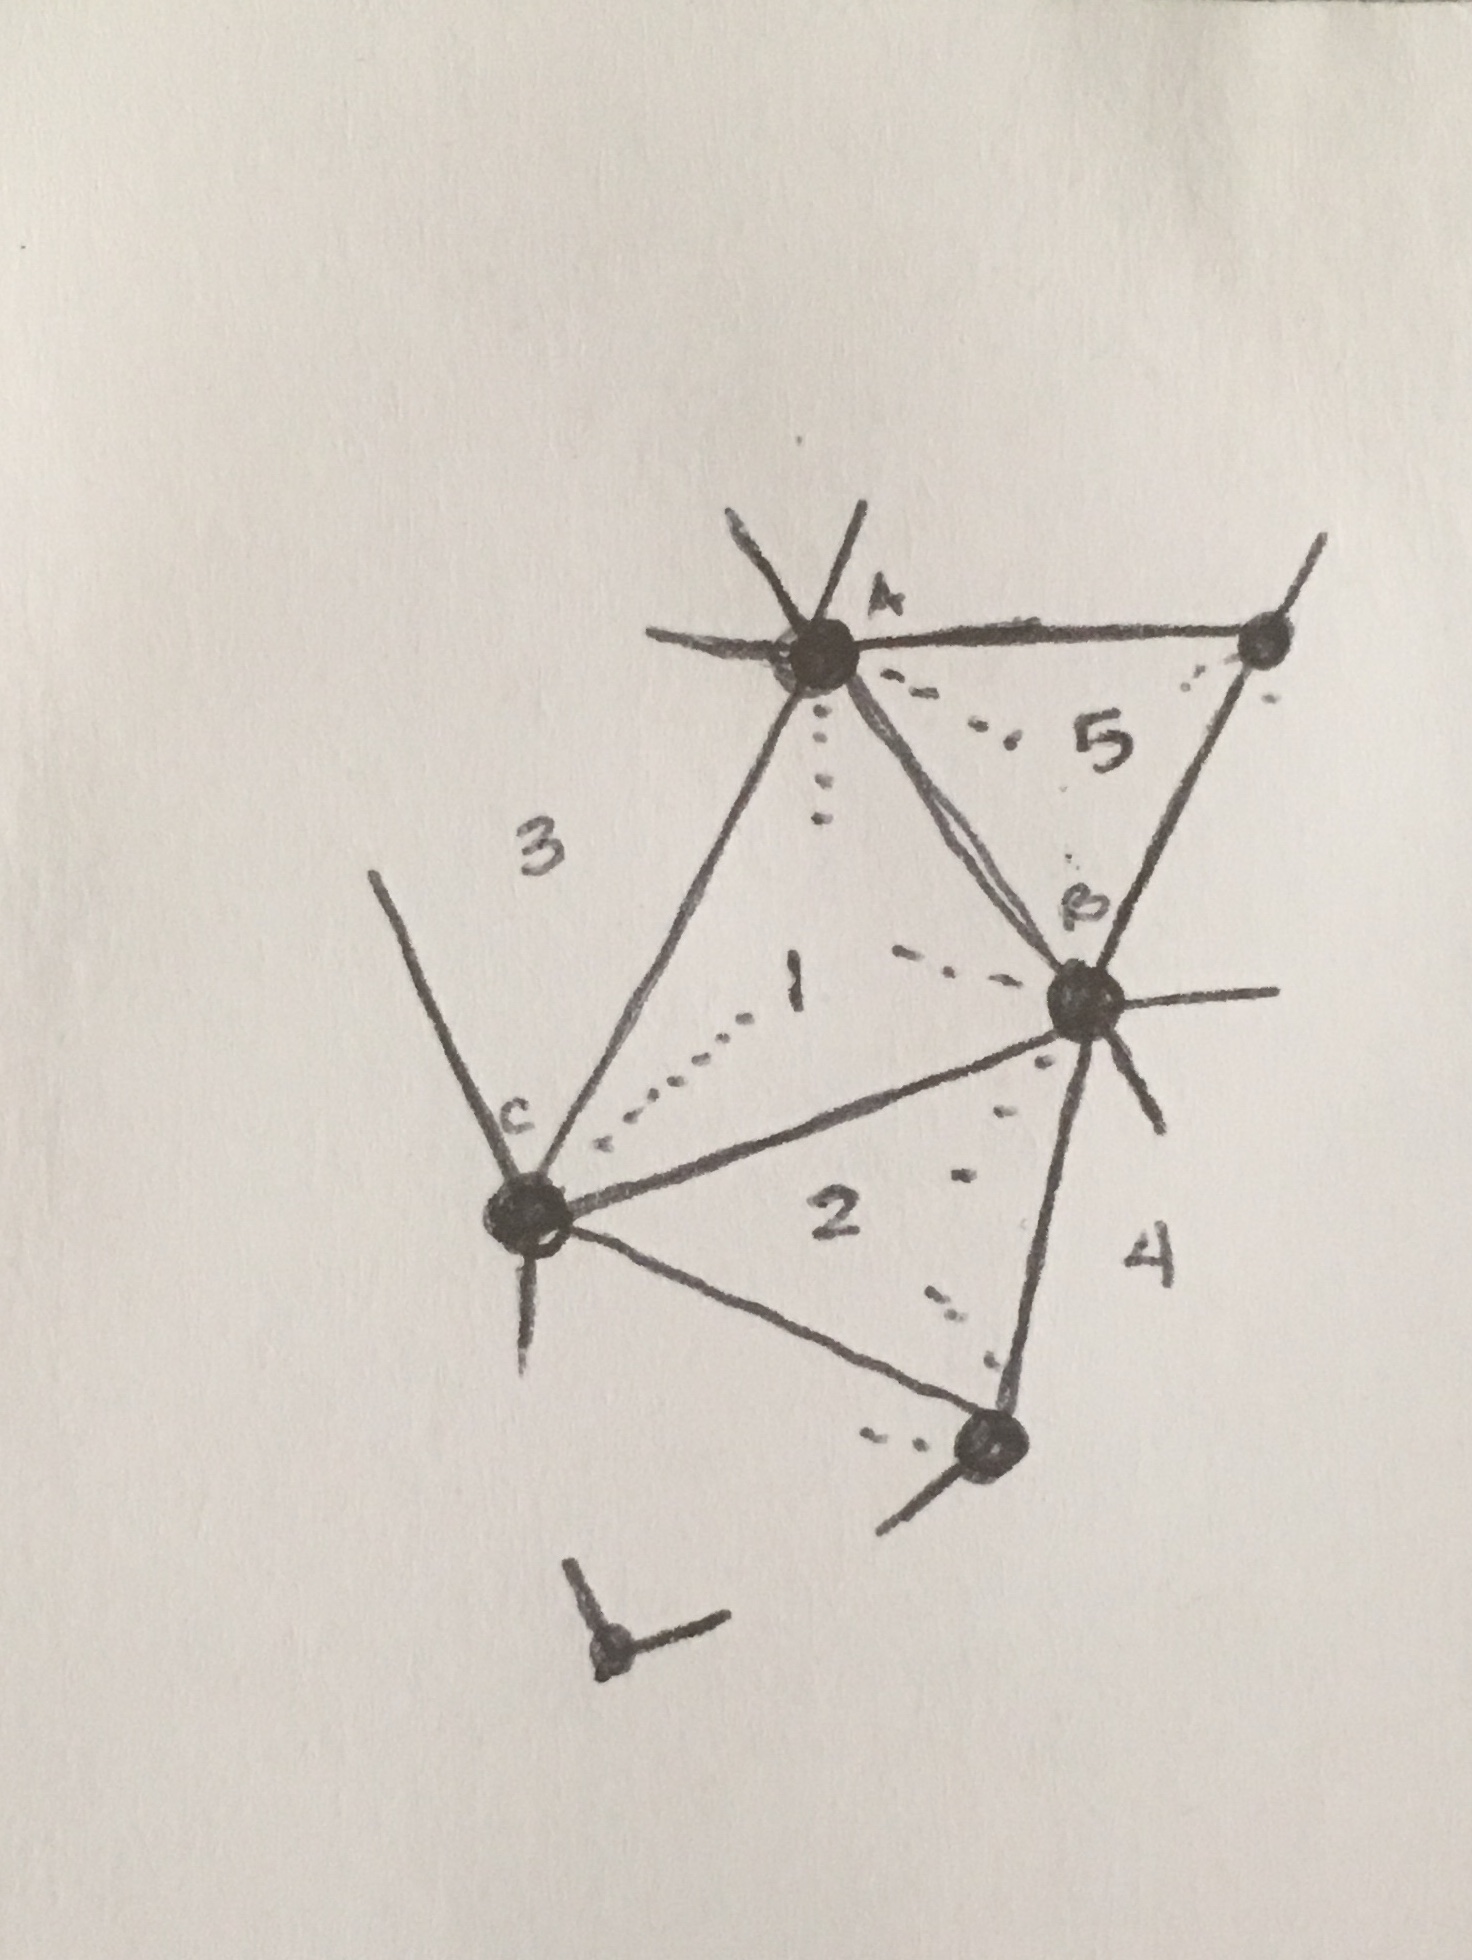 A
5
3
B
1
C
2
4